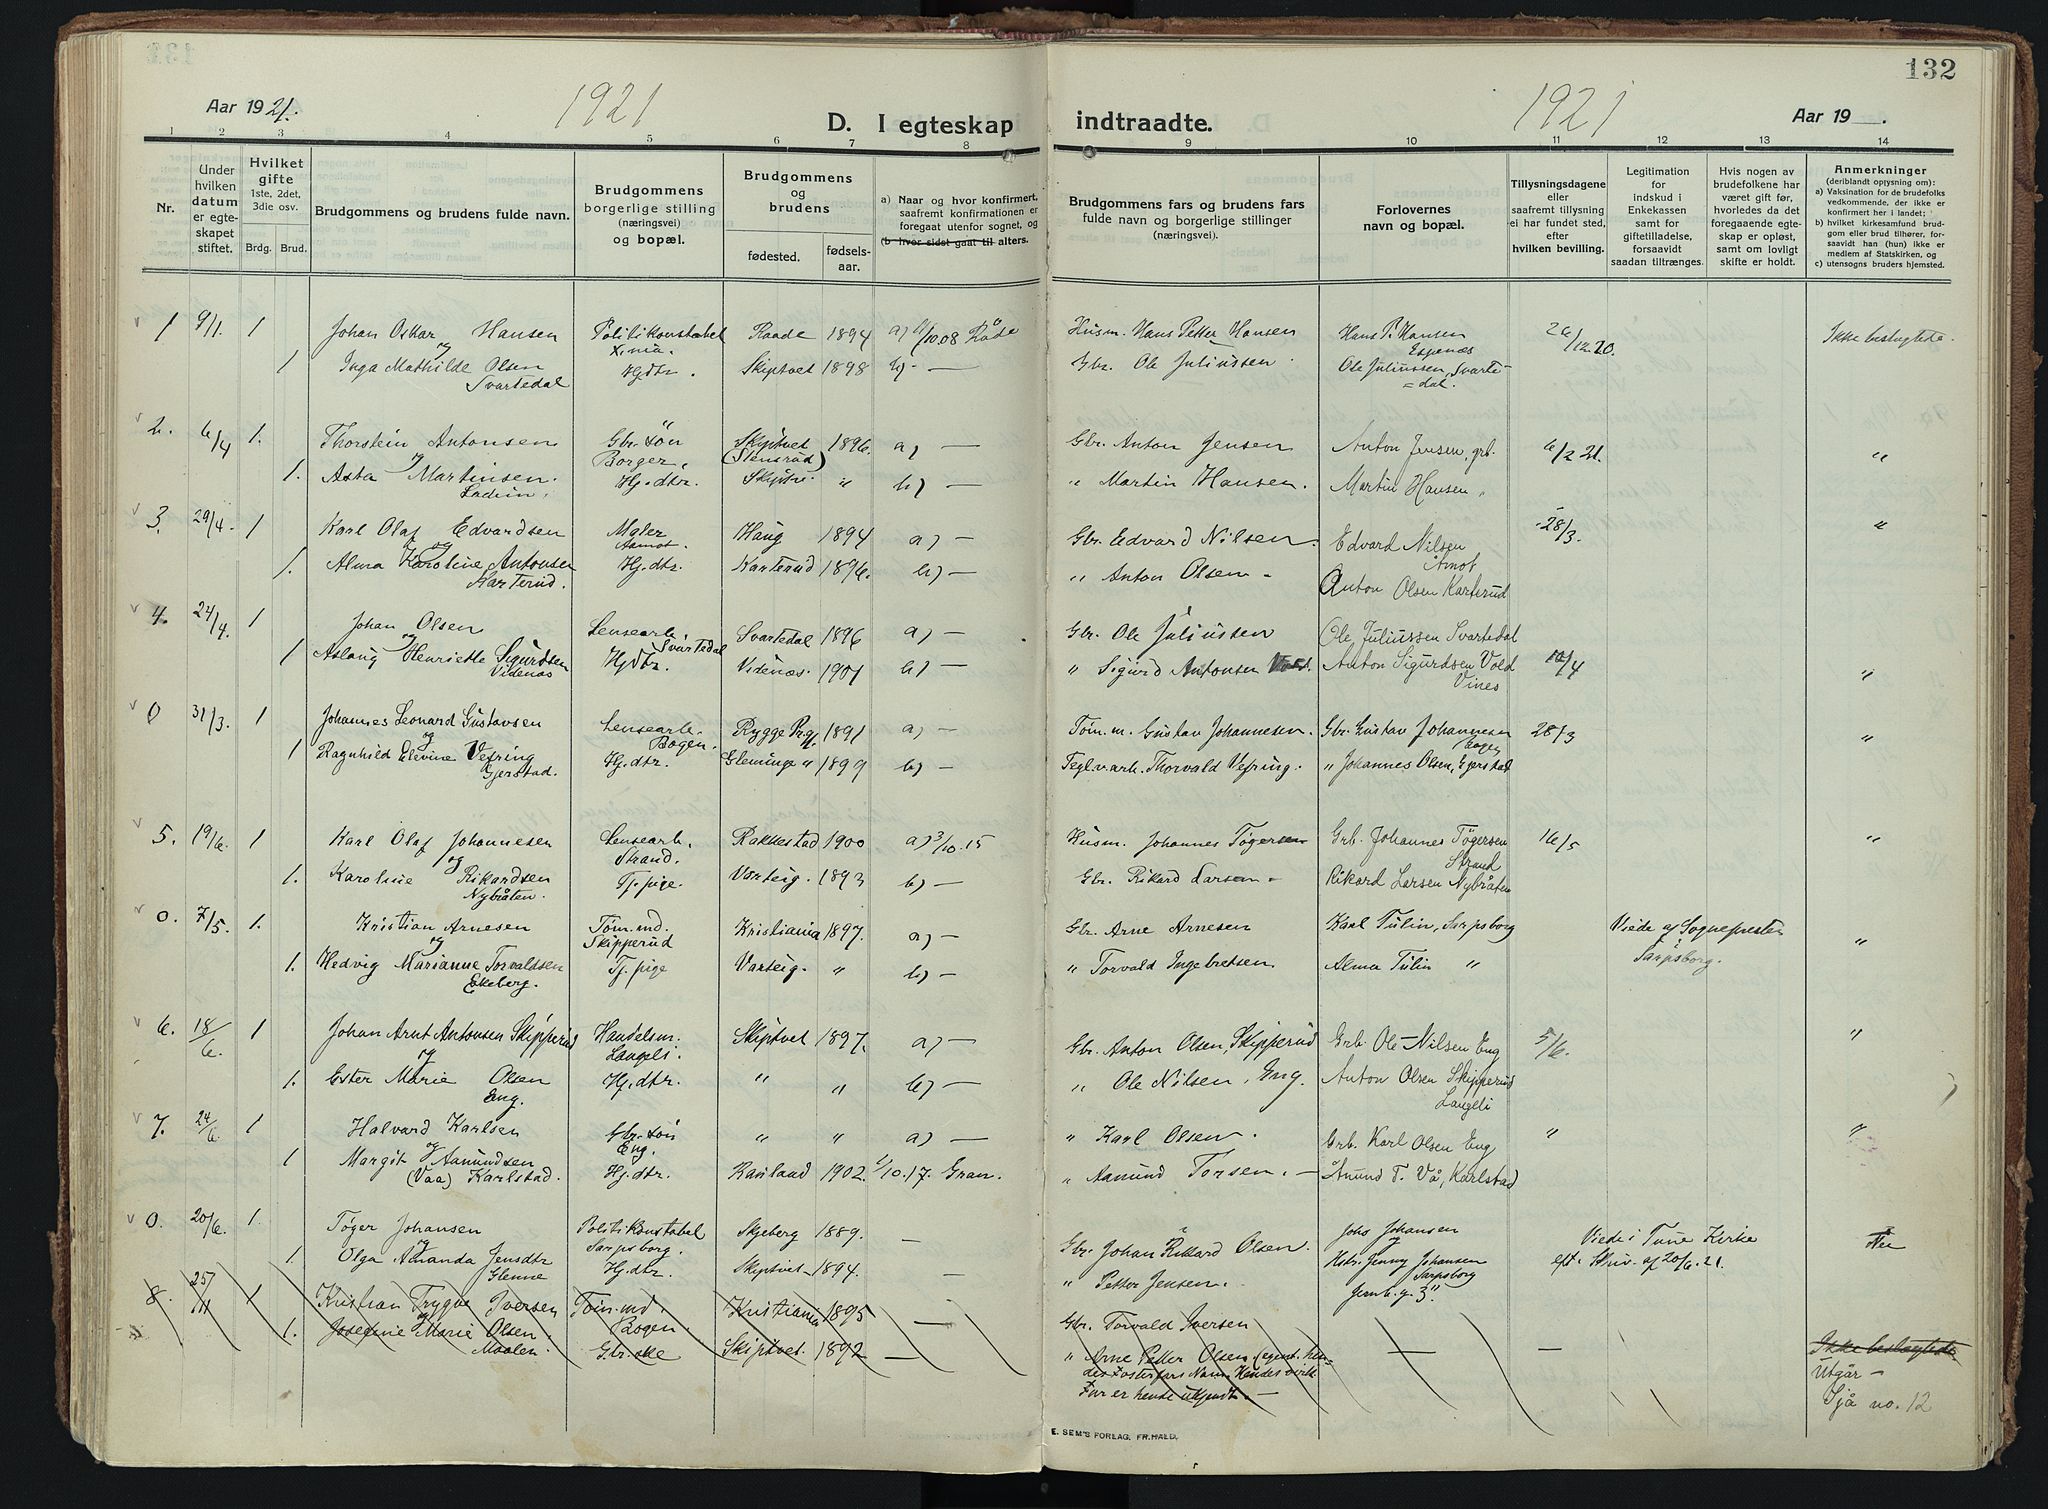 132
Aar 1921.
1921
D. I egteskap
indtraadte.
1921
Aar 19 .
1 2 3 4 5 6 7 8 9 10 11 12 13 14
Nr.
Under hvilken datum er egteskapet stiftet.
Hvilket gifte
1ste, 2det, 3die osv.
Brdg. Brud.
Brudgommens og brudens fulde navn.
Brudgommens borgerlige stilling (næringsvei) og bopæl.
Brudgommens og brudens
fødested. fødselsaar.
a) Naar og hvor konfirmert, saafremt konfirmationen er foregaat utenfor sognet, og
(b hvor sidst gaat til alters.
Brudgommens fars og brudens fars fulde navn og borgerlige stillinger (næringsvei).
Forlovernes navn og bopæl.
Tillysningsdagene eller saafremt tillysning ei har fundet sted, efter hvilken bevilling.
Legitimation for indskud i Enkekassen samt for giftetilladelse, forsaavidt saadan tiltrænges.
Hvis nogen av brudefolkene har været gift før, hvorledes da det foregaaende egteskap er opløst, samt om lovligt skifte er holdt.
Anmerkninger
(deriblandt opysning om):
a) Vaksination for de brudefolks vedkommende, der ikke er konfirmert her i landet;
b) hvilket kirkesamfund brudgom eller brud tilhører, forsaavidt han (hun) ikke er medlem af Statskirken, og
c) utensogns bruders hjemsted.
1 9/1. 1 Johan Oskar Hansen Politikonstabel X.nia. Raade 1894 a) /10.08 Råde Husm. Hans Petter Hansen Hans P. Hansen Espenes 26/12.20. Ikke beslegtede.
og
1 Inga Mathilde Olsen Svartedal Hjdtr. Skiptvet 1898 b) — Gbr. Ole Juliussen. Ole Juliussen, Svarte=dal.
2. 6/4 1. Thorstein Antonsen Gbr. søn Borger. Skiptvet (Stensrud) 1896. a) — Gbr. Anton Jensen Anton Jensen, grb. 6/2 21. "
og
1. Asta Martinsen. Hj.dtr. Skiptv. " b) — " Martin Hansen. Martin Hansen "
3. 29/4. 1 Karl Olaf Edvardsen Maler Aamot. Haug 1894 a) — Gbr. Edvard Nilsen. Edvard Nilsen Åmot 28/3. "
og
1. Alma Karoline Antonsen Karterud. Hj.dtr. Karterud 1896. b) — " Anton Olsen Anton Olsen Karterud
4. 24/4. 1 Johan Olsen Lensearb. Svartedal Svartedal 1896 a) — Gbr. Ole Juliussen Ole Juliussen Svartedal
og
1 Aslaug Henriette Sigurdsen Videnæs Hjdtr. Videnæs. 1901 b) — " Sigurd Antonsen Anton Sigurdsen Vold Vines 10/4 "
0 31/3. 1 Johannes Leonard Gustavsen Lensearb. Bogen. Rygge Prgj. 1891 a) — Tøm.m. Gustav Johannesen. Gbr. Gustav Johannesen Bogen 28/3 "
og
1 Ragnhild Elevine Vefring Gjerstad. Hj.dtr. Gleminge " 1899 b) — Teglv.arb. Thorvald Vefring. " Johannes Olsen, Gjerstad
5. 19/6. 1 Karl Olaf Johannesen Lensearb. Strand. Rakkestad 1900 a) 3/10.15 Husm. Johannes Tøgersen Grb. Johannes Tøgersen Strand 16/5 "
og
1. Karoline Rikardsen Nybråten. Tj.pige. Varteig. 1893 b) — Gbr. Rikard Larsen Rikard Larsen Nybråten
0. 7/5. 1. Kristian Arnesen Tøm.md. Skipperud Kristiania 1897. a) — Gbr. Arne Arnesen Karl Tulin, Sarpsborg Viede af Sognepresten Sarpsborg. "
og
1. Hedvig Marianne Torvaldsen Ekeberg. Tj.pige Varteig. " b) — " Torvald Ingebretsen Alma Tulin "
6. 18/6. 1 Johan Arnt Antonsen Skipperud Handelsm. Langeli. Skiptvet 1897. a) — Gbr. Anton Olsen, Skipperud Grb. Ole Nilsen Eng 5/6. "
og
1. Ester Marie Olsen Eng. Hj.dtr. " " b) — " Ole Nilsen, Eng. Anton Olsen Skipperud Langeli
7. 24/6. 1 Halvard Karlsen Gbr. søn Eng. " " a) — " Karl Olsen. Grb. Karl Olsen Eng " "
og
1 Margit Aamundsen (Vaa) Karlstad. Hj.dtr. Rauland 1902. /10.17. Gran. " Aamund Torsen. — Ånund T. Vå, Karlstad
0. 20/6. 1. Tøger Johansen Politikonstabel Sarpsborg. Skjeberg 1889. — Gbr. Johan Rikkard Olsen. Johs Johansen og Viede i Tune Kirke eft. Skriv. af 20/6.21. Nei
og
1. Olga Amanda Jensdtr Glenne Hj.dtr. Skiptvet 1894. — " Petter Jensen. Hstr. Jenny Johansen Sarpsborg
8. 25/ 1 Kristian Trygve Iversen Tøm.md. Bogen. Kristiania 1895 — Gbr. Torvald Iversen — —
og
1. Josefine Marie Olsen. Maalen. Gbr. Skiptvet. 1892 — " Arne Petter Olsen (egent. hendes Fosterfars Navn. Hendes virk. Far er hende ukjendt. —
Ikke beslegtede
Utgår —
Sjå no. 12
E. SEM'S FORLAG. FR.HALD.